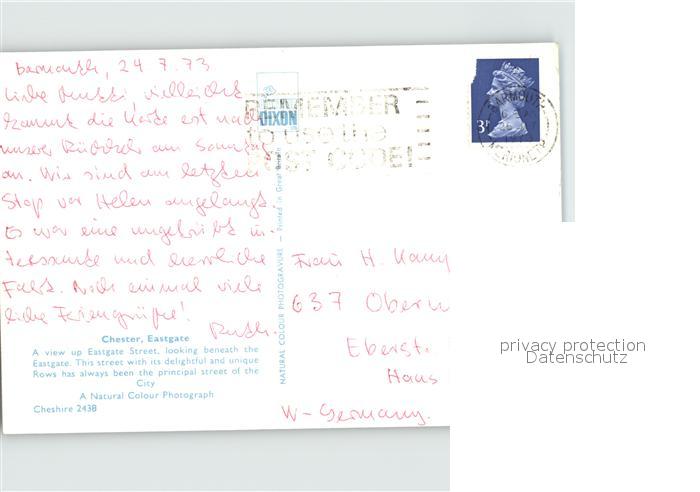 Barmouth, 24.7.73
Liebe Mutti, vielleicht
kommt die Karte erst nach
unserer Rückkehr am Sonntag
an. Wir sind am letzten
Stop vor Helen angelangt.
Es war eine ungeheuer in-
teressante und herrliche
Fahrt. Noch einmal viele
liebe Feriengrüße!
Ruth.
Chester, Eastgate
A view up Eastgate Street, looking beneath the
Eastgate. This street with its delightful and unique
Rows has always been the principal street of the
City
A Natural Colour Photograph
Cheshire 243B
DIXON
NATURAL COLOUR PHOTOGRAVURE — Printed in Great Britain
REMEMBER
to use the
POST CODE!
3P
BARMOUTH
Frau H. Kamp
637 Oberu
Eberst.
Haus
W-Germany.
privacy protection
Datenschutz